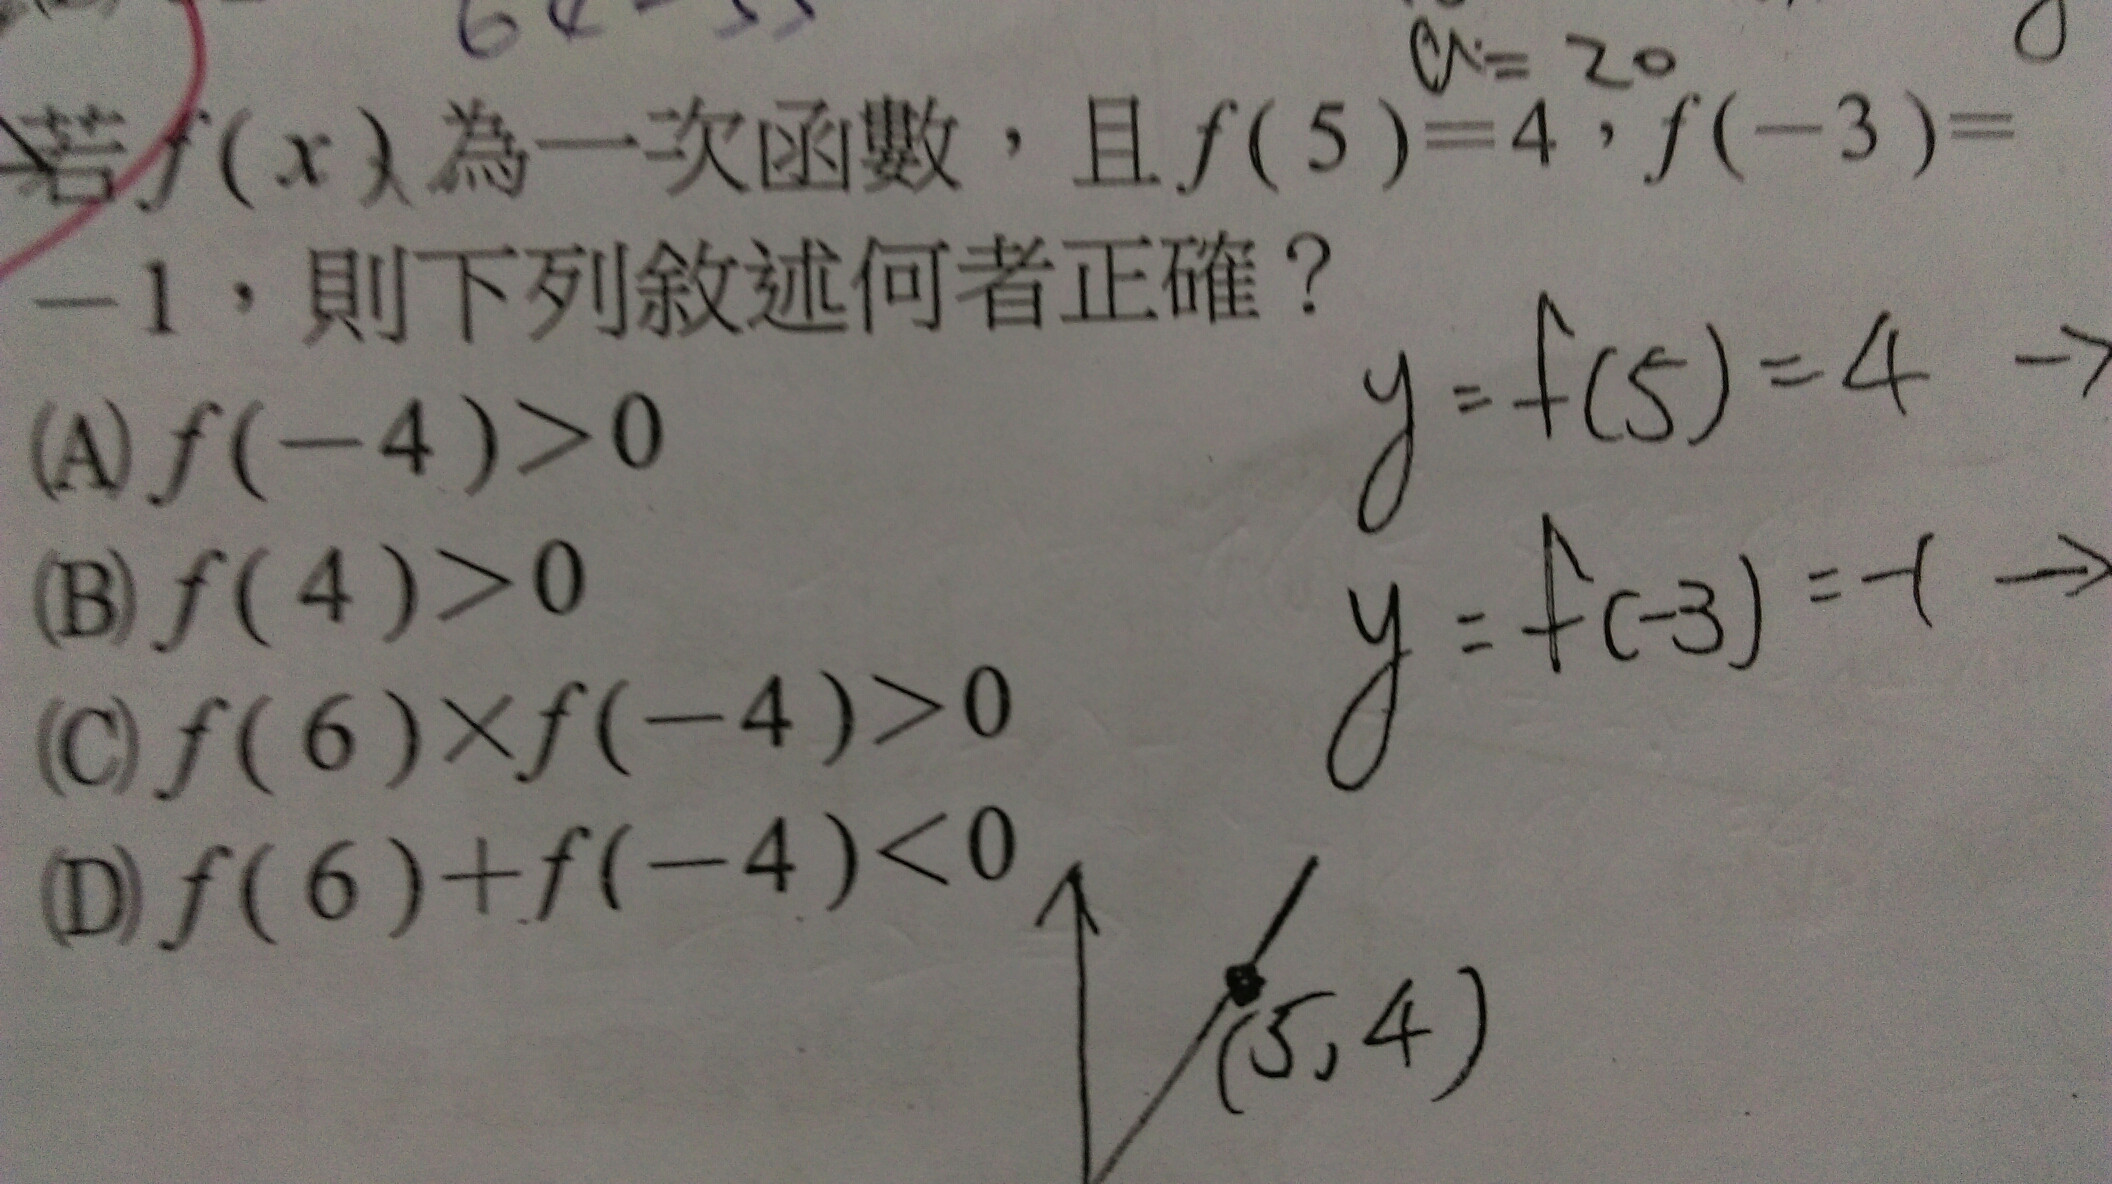 a = 20
若 f(x) 為一次函數，且 f(5)=4，f(-3)=
-1，則下列敘述何者正確？
y = f(5) = 4 →
(A) f(-4)>0
(B) f(4)>0
y = f(-3) = -1 →
(C) f(6)×f(-4)>0
(D) f(6)+f(-4)<0
(5,4)